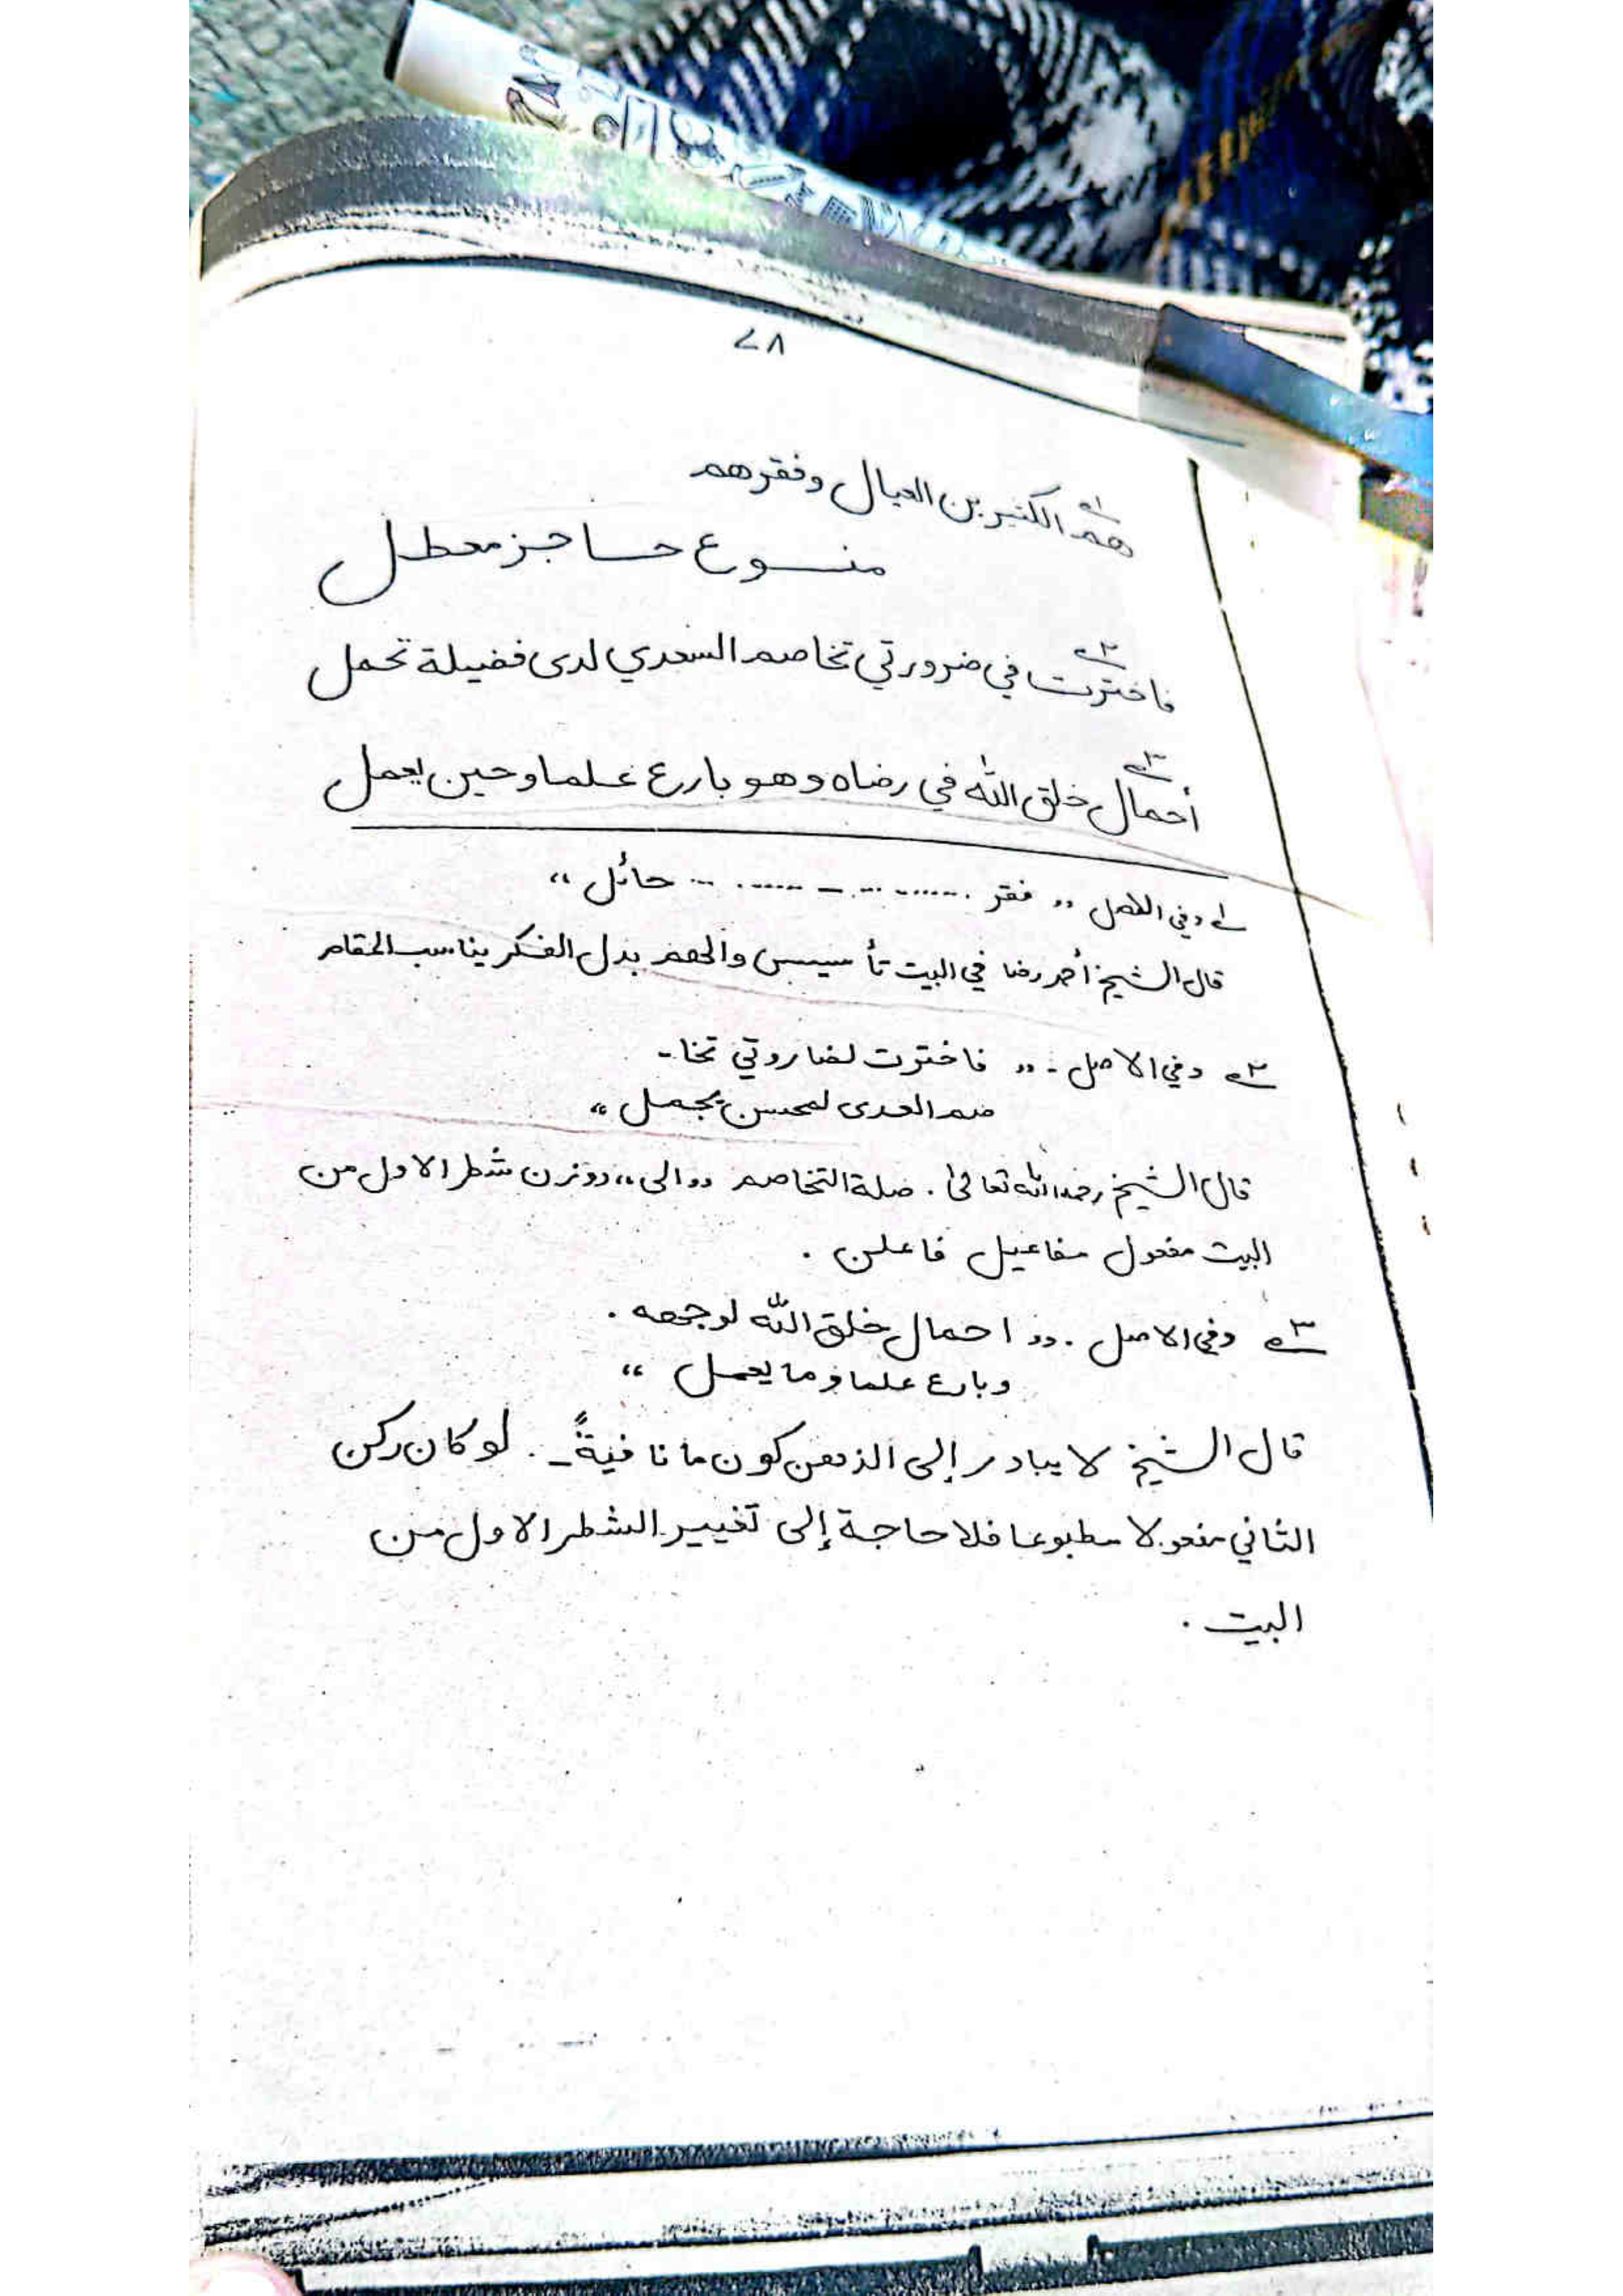 ٧٨
هم الكثيرين العيال وفقرهم
منوع حاجز معطل
فاخترت في ضرورتي تخاصم السعدي لدى فضيلة تحمل
أحمال خلق الله في رضاه وهو بارع علما وحين يعمل
١ وفي الاصل ,, فقر ............ حائل ،،
قال الشيخ أحمد رضا في البيت تأسيس والهم بدل الفكر يناسب المقام
٢ وفي الاصل :- ,, فاخترت لضاروتي تخا-
صم العدى لمحسن يجمل ،،
قال الشيخ رحمه الله تعالى . صلة التخاصم ,, الى ،، ووزن شطر الاول من
البيت مفعول مفاعيل فاعلن .
٣ وفي الاصل . ,, احمال خلق الله لوجهه .
وبارع علما وما يعمل ،،
قال الشيخ لا يبادر إلى الذهن كون ما نافيةً - . لو كان ركن
الثاني مفعولا مطبوعا فلا حاجة إلى تغيير الشطر الاول من
البيت .